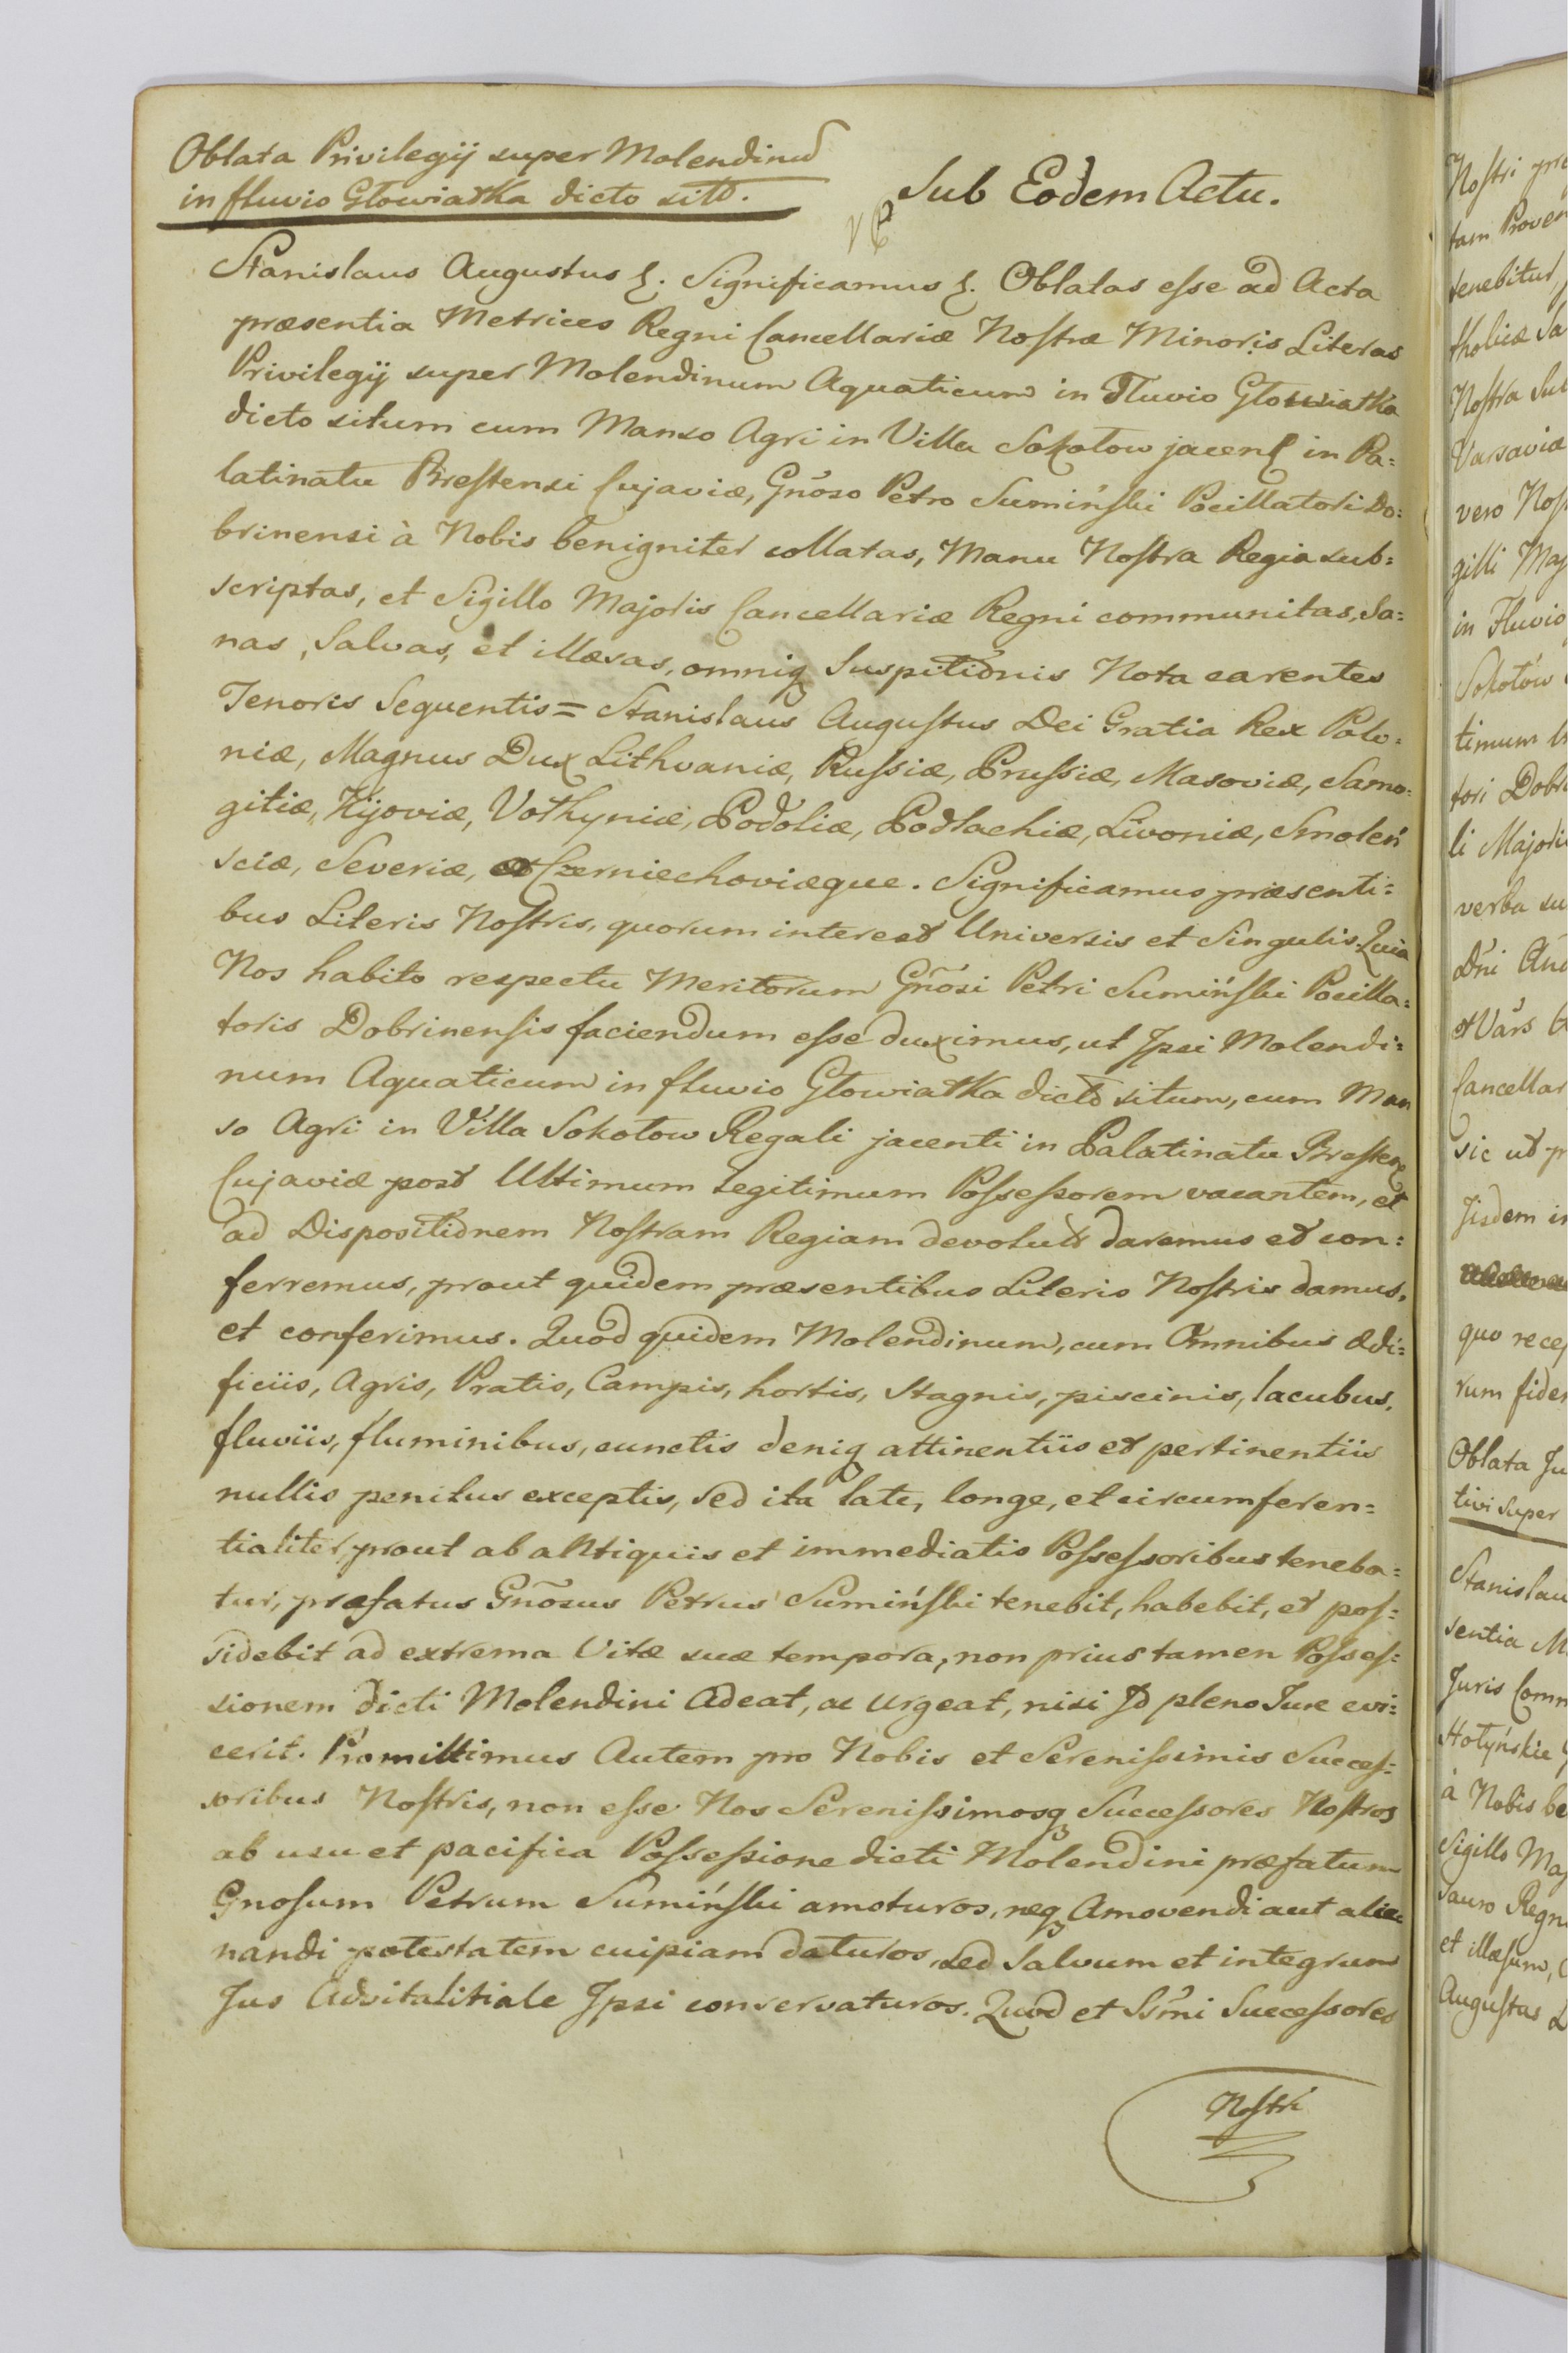 Oblata Privilegij super Molendinū
in fluvio Głowiatka dicto sitō.
Sub Eodem Actu.
Stanislaus Augustus &. Significamus &. Oblatas esse ad Acta
præsentia Metrices Regni Cancellariæ Nostræ Minoris Literas
Privilegij super Molendinum Aquaticum in Fluvio Głowiatka
dicto situm cum Manso Agri in Villa Sokołow jacen̄ in Pa=
latinatu Brestensi Cujaviæ, Gñoso Petro Sumiński Pocillatori Do=
brinensi à Nobis benigniter collatas, Manu Nostra Regia sub=
scriptas, et Sigillo Majoris Cancellariæ Regni communitas, Sa=
nas, Salvas, et illæsas, omniq Suspitiōnis Nota carentes
Tenoris Sequentis = Stanislaus Augustus Dei Gratia Rex Polo=
niæ, Magnus Dux Lithvaniæ, Russiæ, Prussiæ, Masoviæ, Samo=
gitiæ, Kijoviæ, Vołhyniæ, Podoliæ, Podlachiæ, Livoniæ, Smoleń
sciæ, Severiæ, Czerniechoviæque. Significamus præsenti=
bus Literis Nostris, quorum interest Universis et Singulis. Quia
Nos habito respectu Meritorum Gñosi Petri Sumiński Pocilla=
toris Dobrinensis faciendum esse duximus, ut Ipsi Molendi=
num Aquaticum in fluvio Głowiatka dictō situm, cum Man
so Agri in Villa Sokołow Regali jacenti in Palatinatu Bresten̄
Cujaviæ post Ultimum Legitimum Possessorem vacantem, et
ad Dispositiōnem Nostram Regiam devolutū daremus et con=
ferremus, prout quidem præsentibus Literis Nostris damus,
et conferimus. Quod quidem Molendinum, cum Omnibus Ædi=
ficiis, Agris, Pratis, Campis, hortis, Stagnis, piscinis, lacubus,
fluviis, fluminibus, cunctis deniq attinentiis et pertinentiis
nullis penitus exceptis, sed ita late, longe, et circumferen=
tialiter, prout ab antiquis et immediatis Possessoribus teneba=
tur, præfatus Gñosus Petrus Sumiński tenebit, habebit, et pos=
sidebit ad extrema Vitæ suæ tempora, non prius tamen Posses=
sionem dicti Molendini Adeat, ac urgeat, nisi Id pleno Jure evi=
cerit. Promittimus Autem pro Nobis et Serenissimis Succes=
soribus Nostris, non esse Nos Serenissimosq Successores Nostros
ab usu et pacifica Possessione dicti Molendini præfatum
Gnosum Petrum Sumiński amoturos, neq Amovendi aut alie
nandi potestatem cuipiam daturos, sed Salvum et integrum
Jus Advitalitiale Ipsi conservaturos. Quod et Ssm̃i Successores
Nostri
Nostri
tenebitur
Nostra
Varsaviæ
vero
gilli
in Fluvio
Sokołow
timum
tori
li Majoris
verba
Dñi
sic ut
Jisdem
quo
rum
Oblata
tivi super
sentia
Juris
Hołyńskie
à Nobis
Sigillo
et illæsum,
Augustus